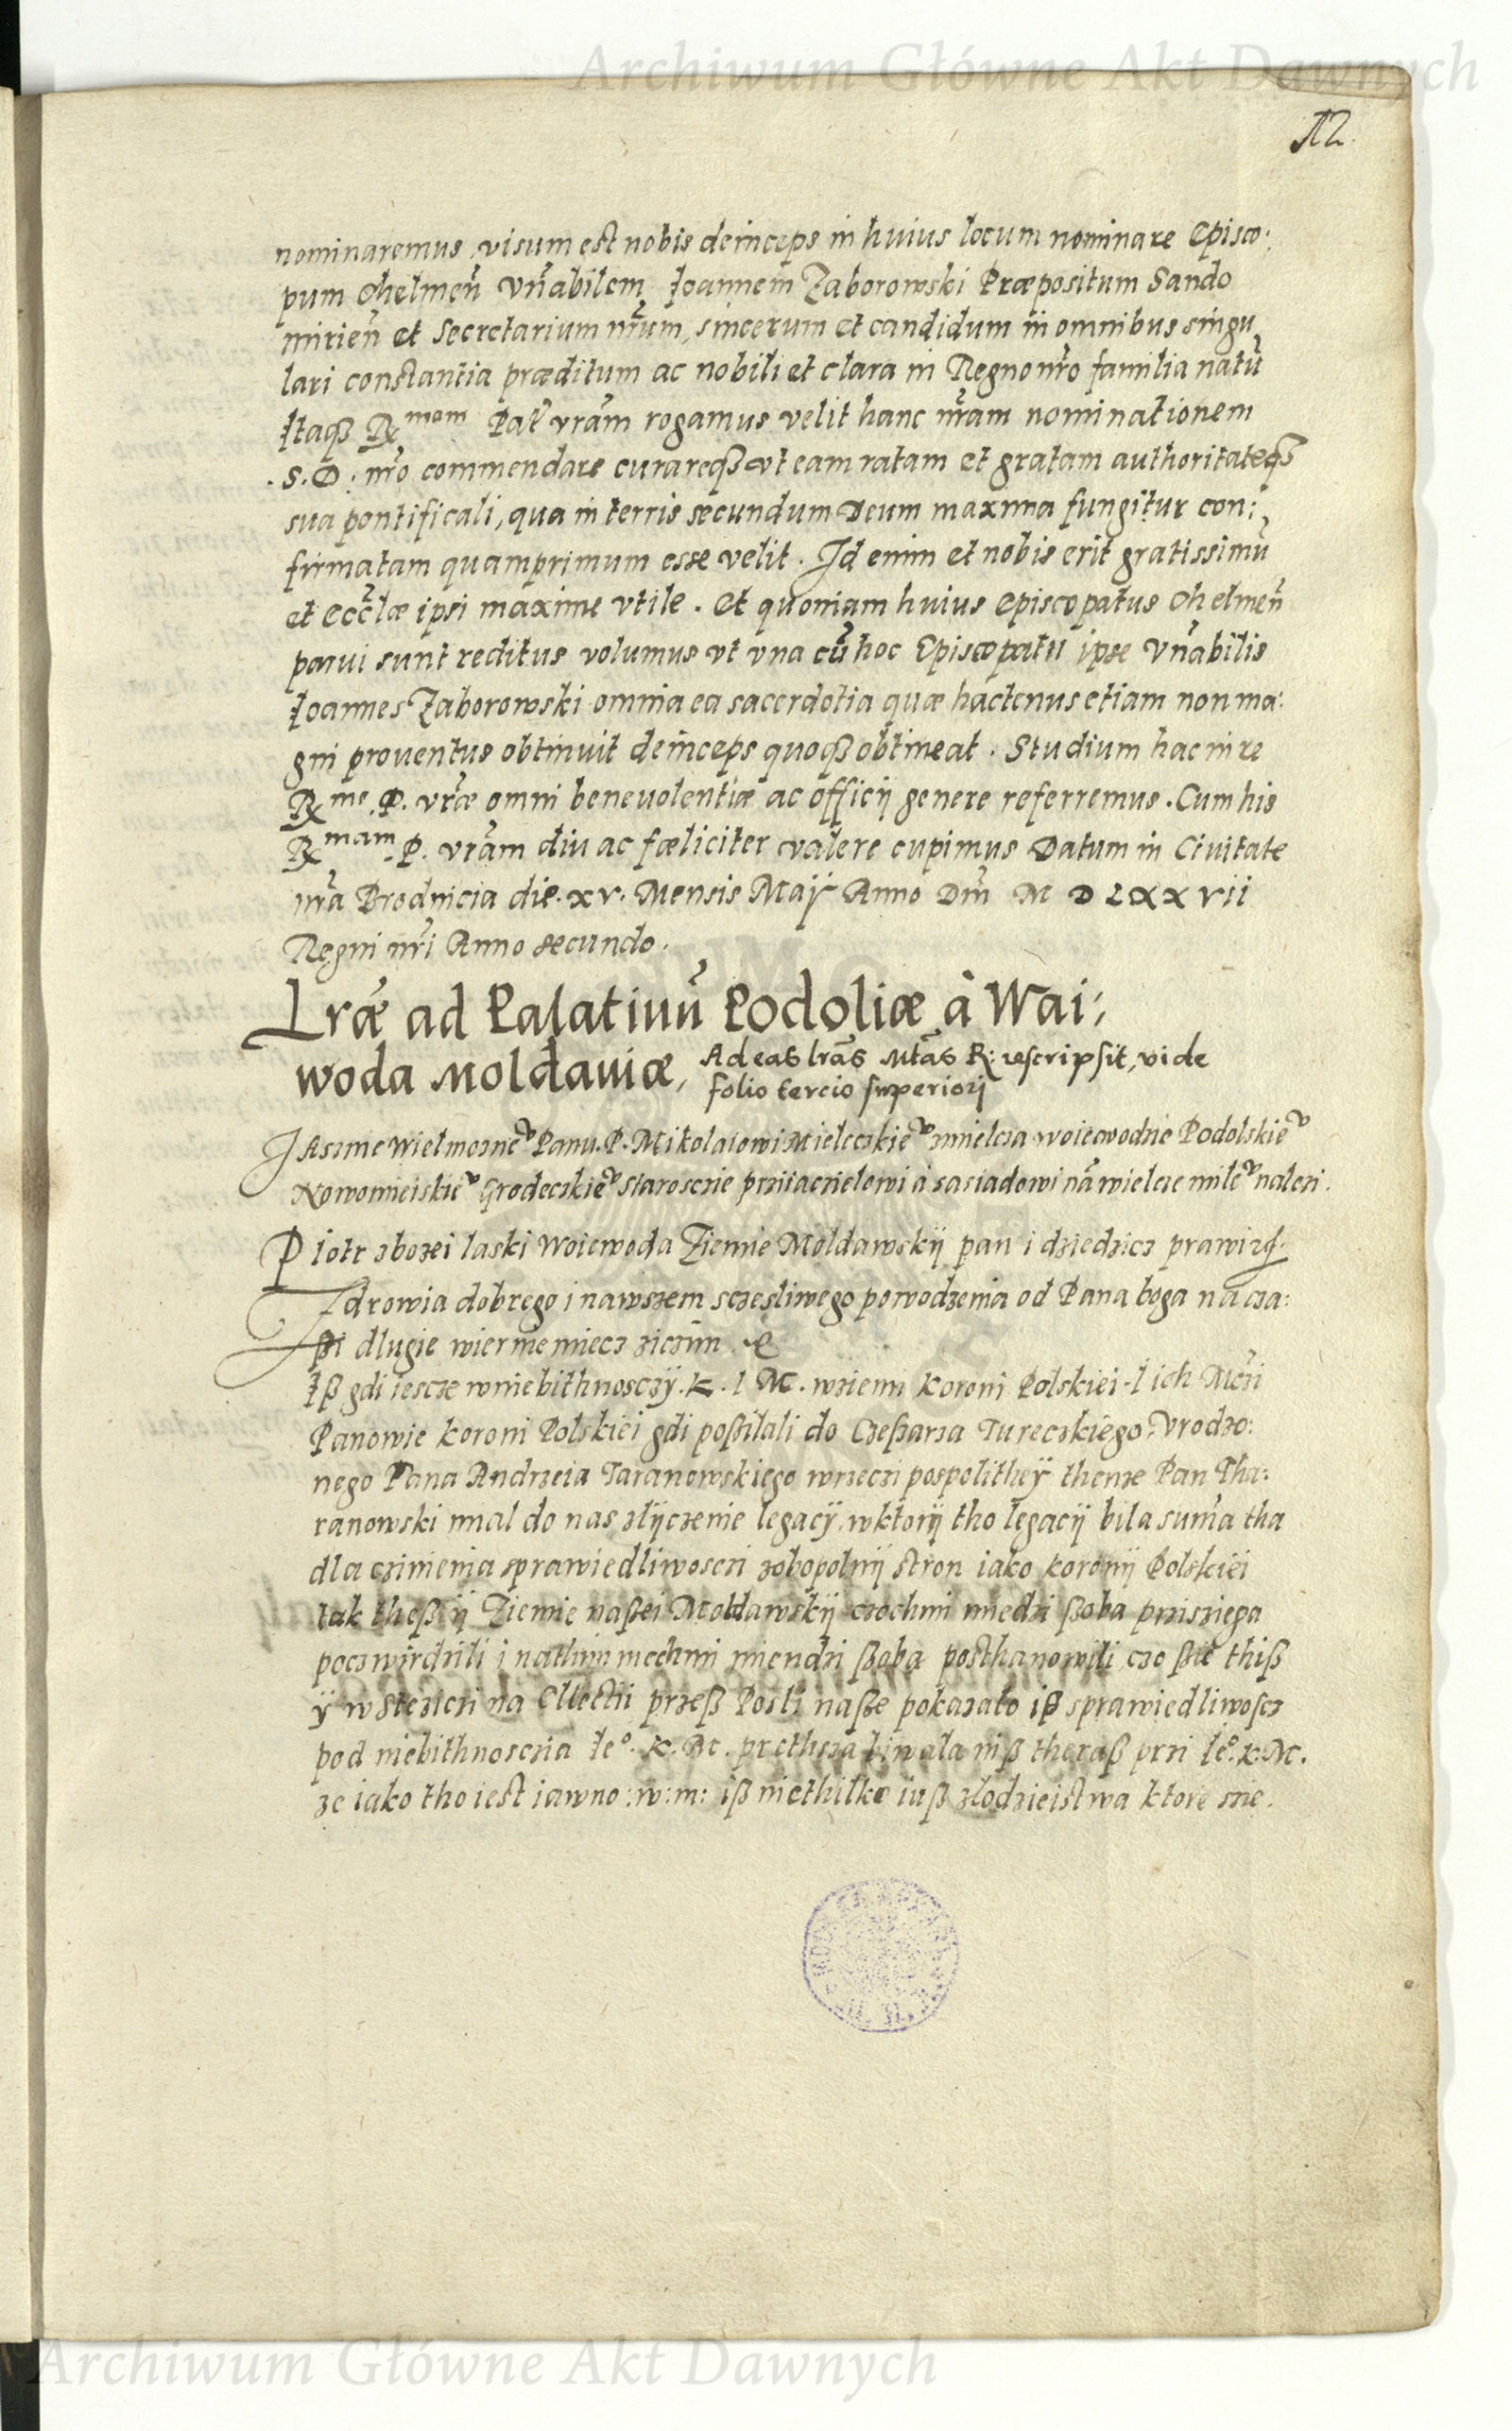 Archiwum Główne Akt Dawnych
12.
nominaremus, visum est nobis deinceps in huius locum nominare Episco:
pum Chelmen̄ Vn̄abilem Joannem Zaborowski Præpositum Sando
mirien̄ et Secretarium nr̄um, sincerum et candidum in omnibus singu
lari constantia præditum ac nobili et clara in Regno nr̄o familia natū
Itaqꝫ Rmam Pat vrām rogamus velit hanc nr̄am nominationem
S. D: nr̄o commendare curareqꝫ vt eam ratam et gratam authoritateqꝫ
sua pontificali, qua in terris secundum Deum maxima fungitur con:
firmatam quamprimum esse velit. Id enim et nobis erit gratissimū
et Eccłæ ipsi maxime vtile. Et quoniam huius Episcopatus Chelmen̄
parui sunt reditus volumus vt vna cū hoc Episcopatu ipse Vn̄abilis
Joannes Zaborowski omnia ea sacerdotia quæ hactenus etiam non ma:
gni prouentus obtinuit deinceps quoqꝫ obtineat. Studium hac in re
Rme P. vrǣ omni beneuolentiæ ac officij genere referremus. Cum his
Rmam P. vrām diu ac fœliciter valere cupimus Datum in Ciuitate
nr̄a Brodnicia die. xv. Mensis Maij Anno Dnī M D LXXVII
Regni nr̄i Anno secundo.
Lrǣ ad Palatinū Podoliæ à Wai:
woda Moldauiæ, Ad eas lrās Mtās R: rescripsit, vide
folio tercio superiori
Jasznie Wielmoznev Panu. P. Mikolaiowi Mieleczkiev zmielcza woiewodzie Podolskiev
Nowomieiskiev Grodeczkiev Starosczie prziiaczielowi à sasiadowi nā wielcze milev nalezi.
Piotr zbozei laski Woiewoda Ziemie Moldawskij pan i dziedzicz prawi
Zdrowia dobrego i nawszem sczesliwego powodzenia od Pana boga na cza:
ßi dlugie wiernie miecz ziczim.
Iß gdi iescze wniebithnosczÿ. K. I Mc. wziemi koroni Polskiei I ich Mczi
Panowie koroni Polskiei gdi poßilali do Czeßarza Tureczkiego, Vrodzo:
nego Pana Andrzeia Taranowskiego wrzeczi pospolitheÿ thenze Pan Tha:
ranowski mial do nas zlÿczenie legacÿ, wktorÿ tho legacÿ bila sum̄a tha
dla czinienia sprawiedliwosczi zobopolnÿ stron iako koronÿ Polskiei
tak theß ÿ Ziemie naßei Moldawskij czochmi miedzi ßoba prziszięga
poczwirdzili i nathim mechmi miendzi ßoba posthanowili czo ßie thiß
ÿ w Stezici na Ellectii przeß Posli naße pokazało iß sprawiedliwoscz
pod niebithnosczia Ieo. K. Mc. prethsza biwala niß theraß przi Ieo. K. Mc.
ze iako tho iest iawno :w:m: iß niethilko iuß złodzieistwa ktore szie.
Archiwum Główne Akt Dawnych